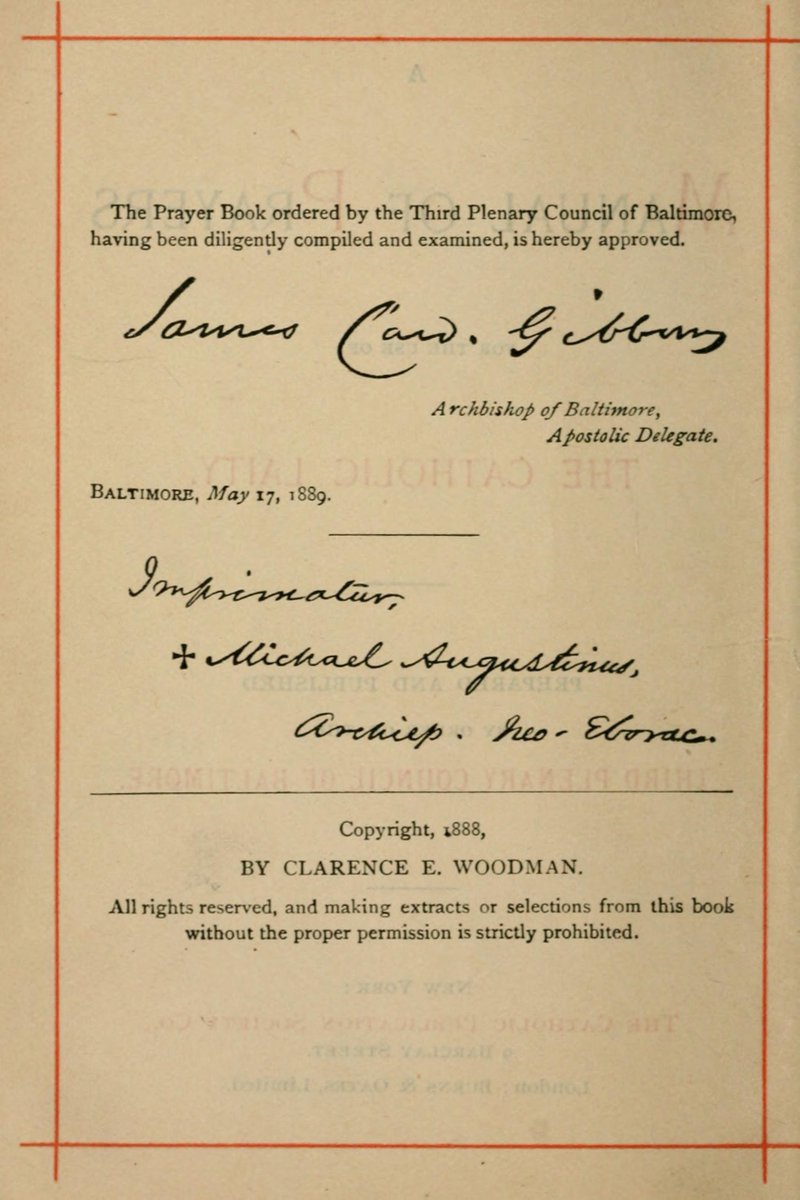 The Prayer Book ordered by the Third Plenary Council of Baltimore,
having been diligently compiled and examined, is hereby approved.
James Card. Gibbons
Archbishop of Baltimore,
Apostolic Delegate.
BALTIMORE, May 17, 1889.
Imprimatur,
✢ Michael Augustinus,
Archiep. Neo-Eborac.
Copyright, 1888,
BY CLARENCE E. WOODMAN.
All rights reserved, and making extracts or selections from this book
without the proper permission is strictly prohibited.